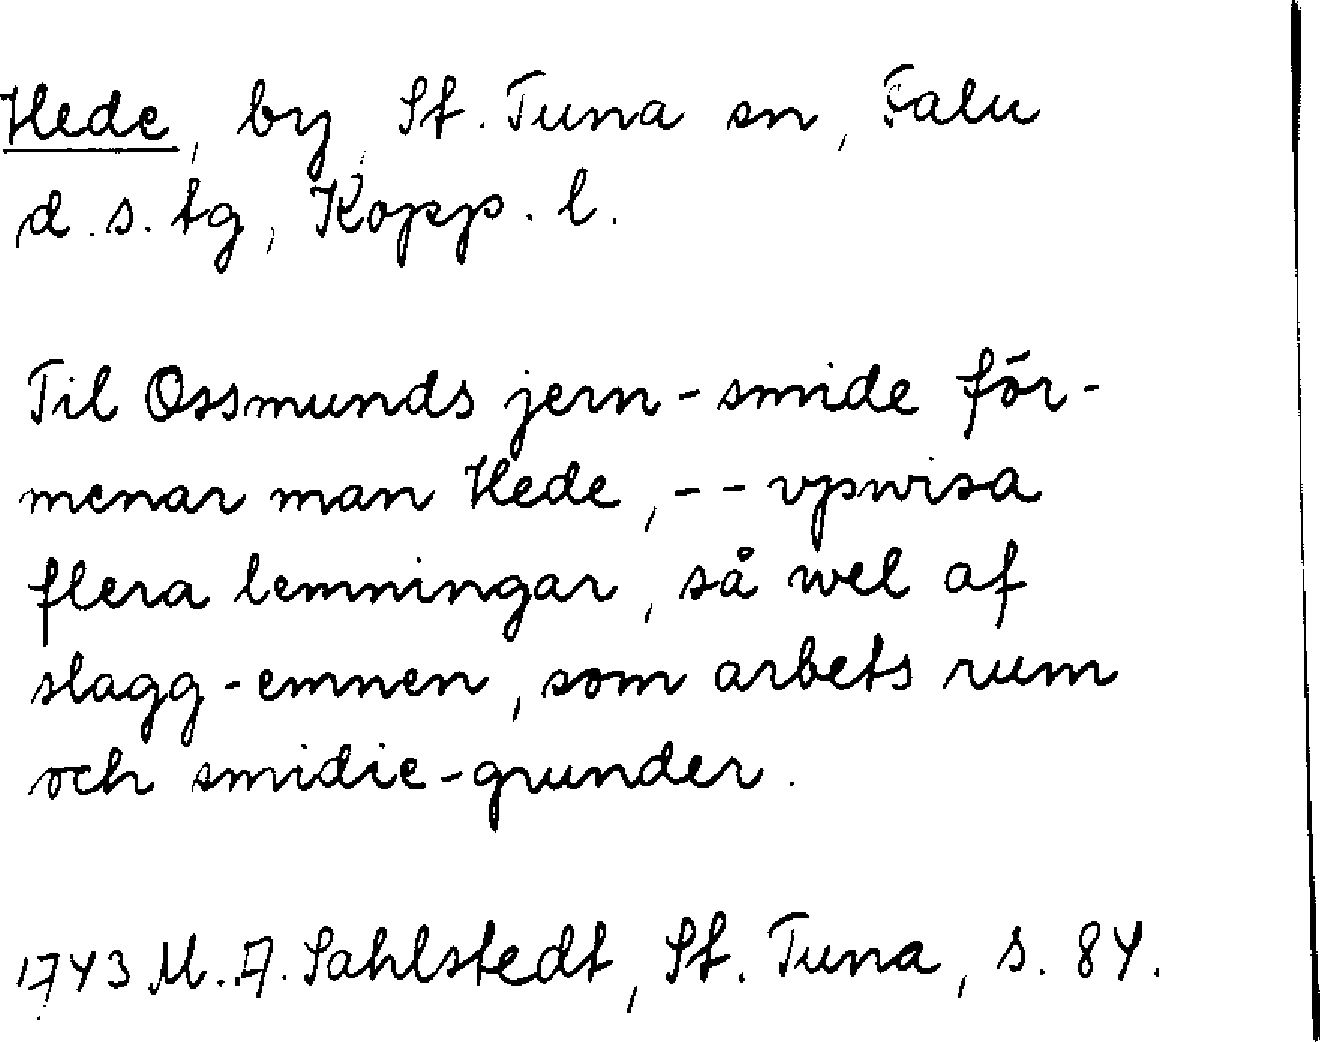 Hede, by, St. Tuna sn, Falu
d.s. tg, Kopp. l.
Til Ossmunds jern-smide för-
menar man Hede, -- vpwisa
flera lemningar, så wel af
slagg-emnen, som arbets rum
och smidie-grunder.
1743 M.A. Sahlstedt, St. Tuna, s. 84.